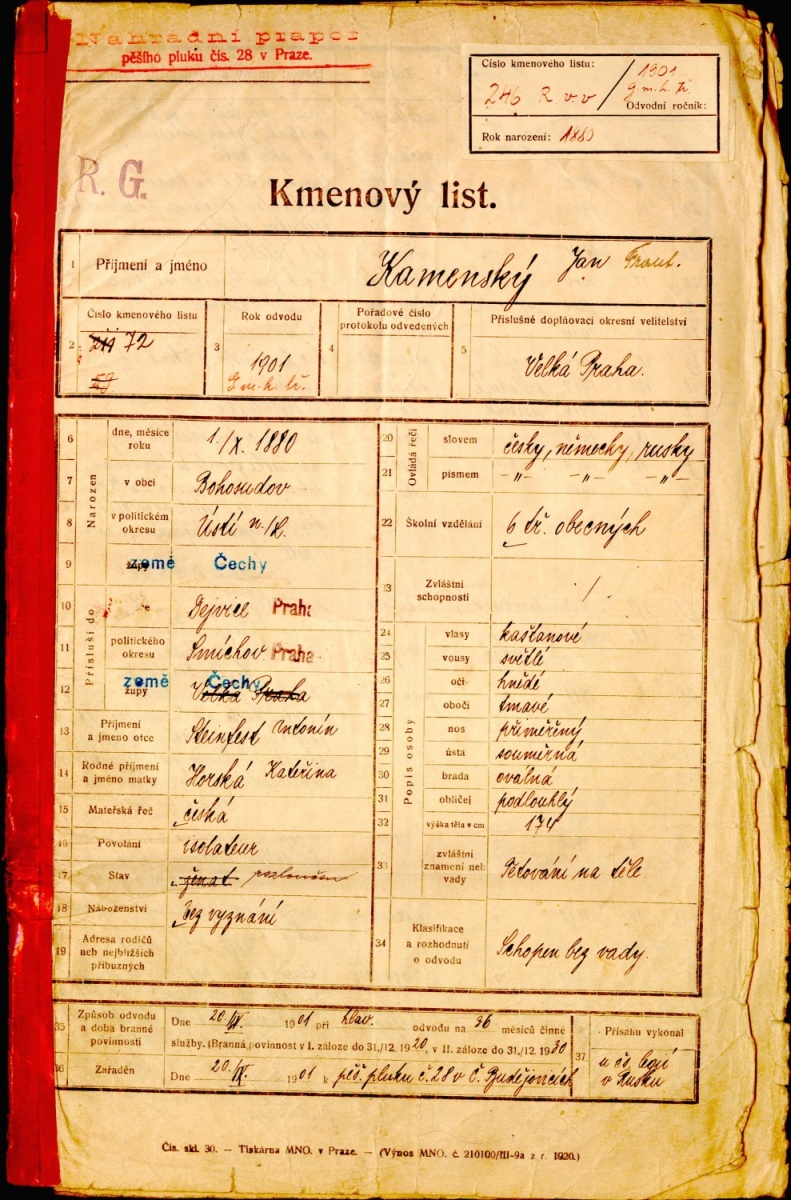 Náhradní prapor
pěšího pluku čís. 28 v Praze.
Číslo kmenového listu:
246 R v v / 1901
g.m.h.tř.
Odvodní ročník:
Rok narození: 1880
R. G.
Kmenový list.
1 Příjmení a jméno Kamenský Jan Frant.
2 Číslo kmenového listu 72
3 Rok odvodu 1901
4 Pořadové číslo protokolu odvedených
5 Příslušné doplňovací okresní velitelství Velká Praha.
Narozen
6 dne, měsíce roku 1./X. 1880
7 v obci Bohosudov
8 v politickém okresu Ústí n./L.
9 župy země Čechy
Přísluší do
10 Dejvice Praha
11 politického okresu Smíchov Praha
12 župy země Čechy Velká Praha
13 Příjmení a jmeno otce Steinfest Antonín
14 Rodné příjmení a jméno matky Horská Kateřina
15 Mateřská řeč česká
16 Povolání isolateur
17 Stav ženat rozloučen
18 Náboženství bez vyznání
19 Adresa rodičů neb nejbližších příbuzných
Ovládá řeči
20 slovem česky, německy, rusky
21 písmem -"- -"- -"-
22 Školní vzdělání 6 tř. obecných
23 Zvláštní schopnosti /
Popis osoby
24 vlasy kaštanové
25 vousy světlé
26 oči hnědé
27 obočí tmavé
28 nos přiměřený
29 ústa souměrná
30 brada oválná
31 obličej podlouhlý
32 výška těla v cm 174
33 zvláštní znamení neb vady Tetování na těle.
34 Klasifikace a rozhodnutí o odvodu Schopen bez vady.
35 Způsob odvodu a doba branné povinnosti
Dne 20./IX. 1901 při hlav. odvodu na 36 měsíců činné
služby. (Branná povinnost v I. záloze do 31./12. 1920, v II. záloze do 31./12. 1930
36 Zařaděn Dne 20./IX. 1901 k pěš. pluku č. 28 v Č. Budějovicích
37 Přísahu vykonal
u čs. legií
v Rusku
Čís. skl. 30. — Tiskárna MNO. v Praze. — (Výnos MNO. č. 210100/III-9a z r. 1920.)